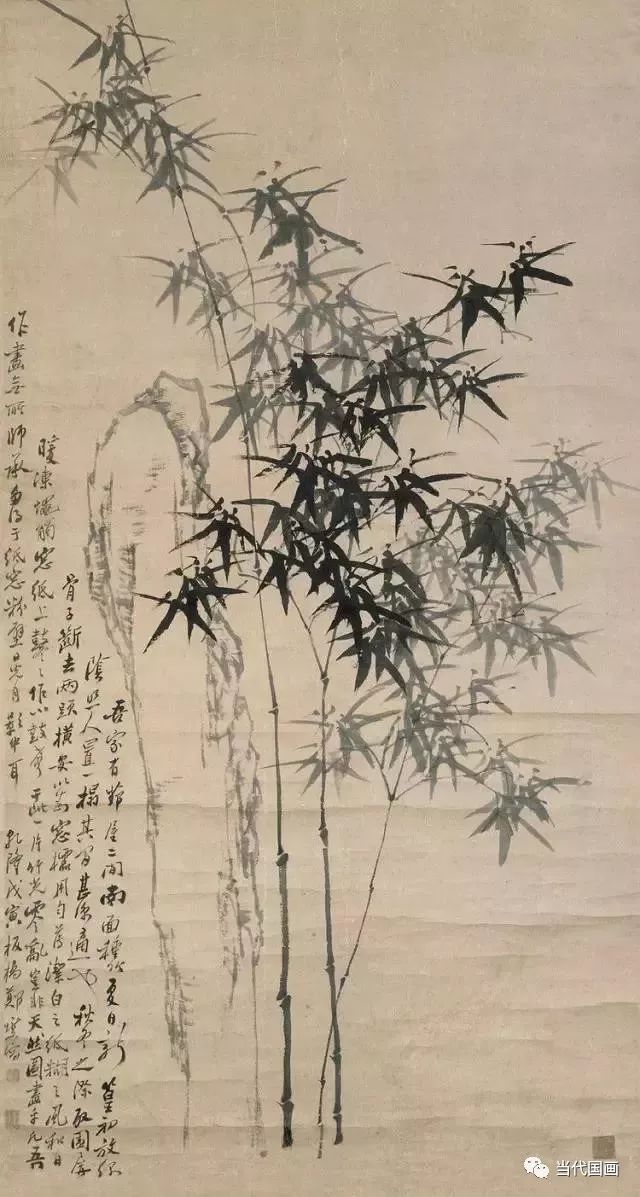 吾家有茅屋二間南面種竹夏日新篁初放綠
陰照人置一榻其中甚涼適也秋冬之際取圍屏
骨子斷去兩頭橫安以為窓櫺用勻薄潔白之紙糊之風和日
暖凍蠅觸窓紙上鼕々作小鼓聲于此一片竹光零亂豈非天然圖畫乎凡吾
作畫無所師承多得于紙窓粉壁日光月影中耳 乾隆戊寅板橋鄭燮
当代国画